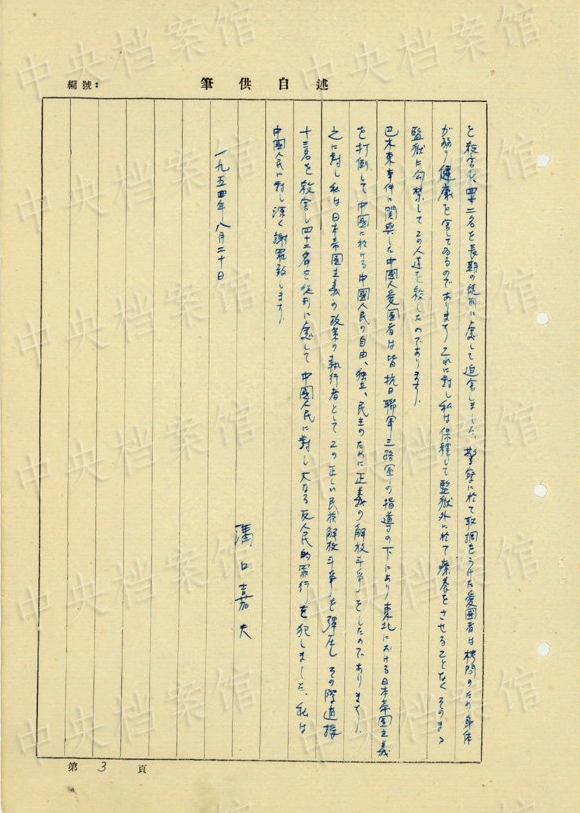 編號：
筆供自述
を殺害し、四十二名を長期の徒刑に処して迫害しました、警察に於て取調をうけた愛国者は拷問のため身体
が弱り健康を害してゐるのであります、これに対し私は保釈して監獄外に於て療養をさせることなくそのまゝ
監獄に勾禁してこの人達を殺したのであります、
巴木東事件に関与した中国人愛国者は皆抗日聯軍三路軍の指導の下にあり東北における日本帝国主義
を打倒して中国に於ける中国人民の自由、独立、民主のために正義の解放斗争をしたのであります、
之に対し私は日本帝国主義の政策の執行者としてこの正しい民族解放斗争を弾圧しその際直接
十三名を殺害し四十二名を徒刑に処して中国人民に対し大なる反人民的罪行を犯しました、私は
中国人民に対し深く謝罪致します、
一九五四年八月二十日
溝口嘉夫
第3頁
中央档案馆